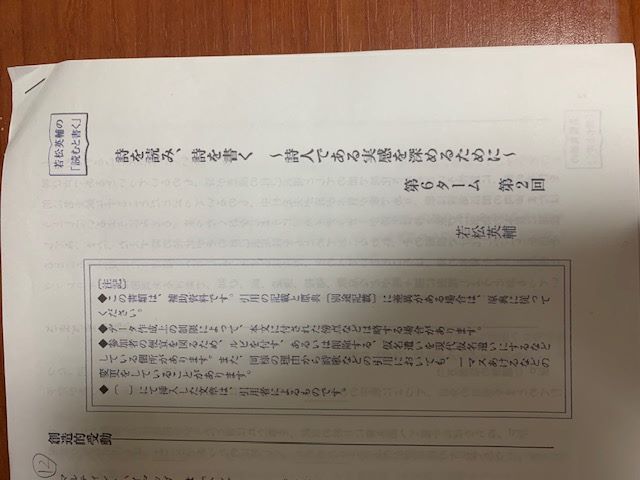 若松英輔の
「読むと書く」
詩を読み、詩を書く ～詩人である実感を深めるために～
第6ターム 第2回
若松英輔
【注記】
◆この書類は、補助資料です。引用の記載と原典（別途記載）に差異がある場合は、原典に従って
ください。
◆データ作成上の制限によって、本文に付された傍点などは略する場合があります。
◆参加者の便宜を図るため、ルビを付す、あるいは削除する、仮名遣いを現代仮名遣いにするなど
している個所があります。また、同様の理由から詩歌などの引用においても、一マスあけるなどの
変更をしていることがあります。
◆〔 〕にて挿入した文章は、引用者によるものです。
創造的受動
⑫